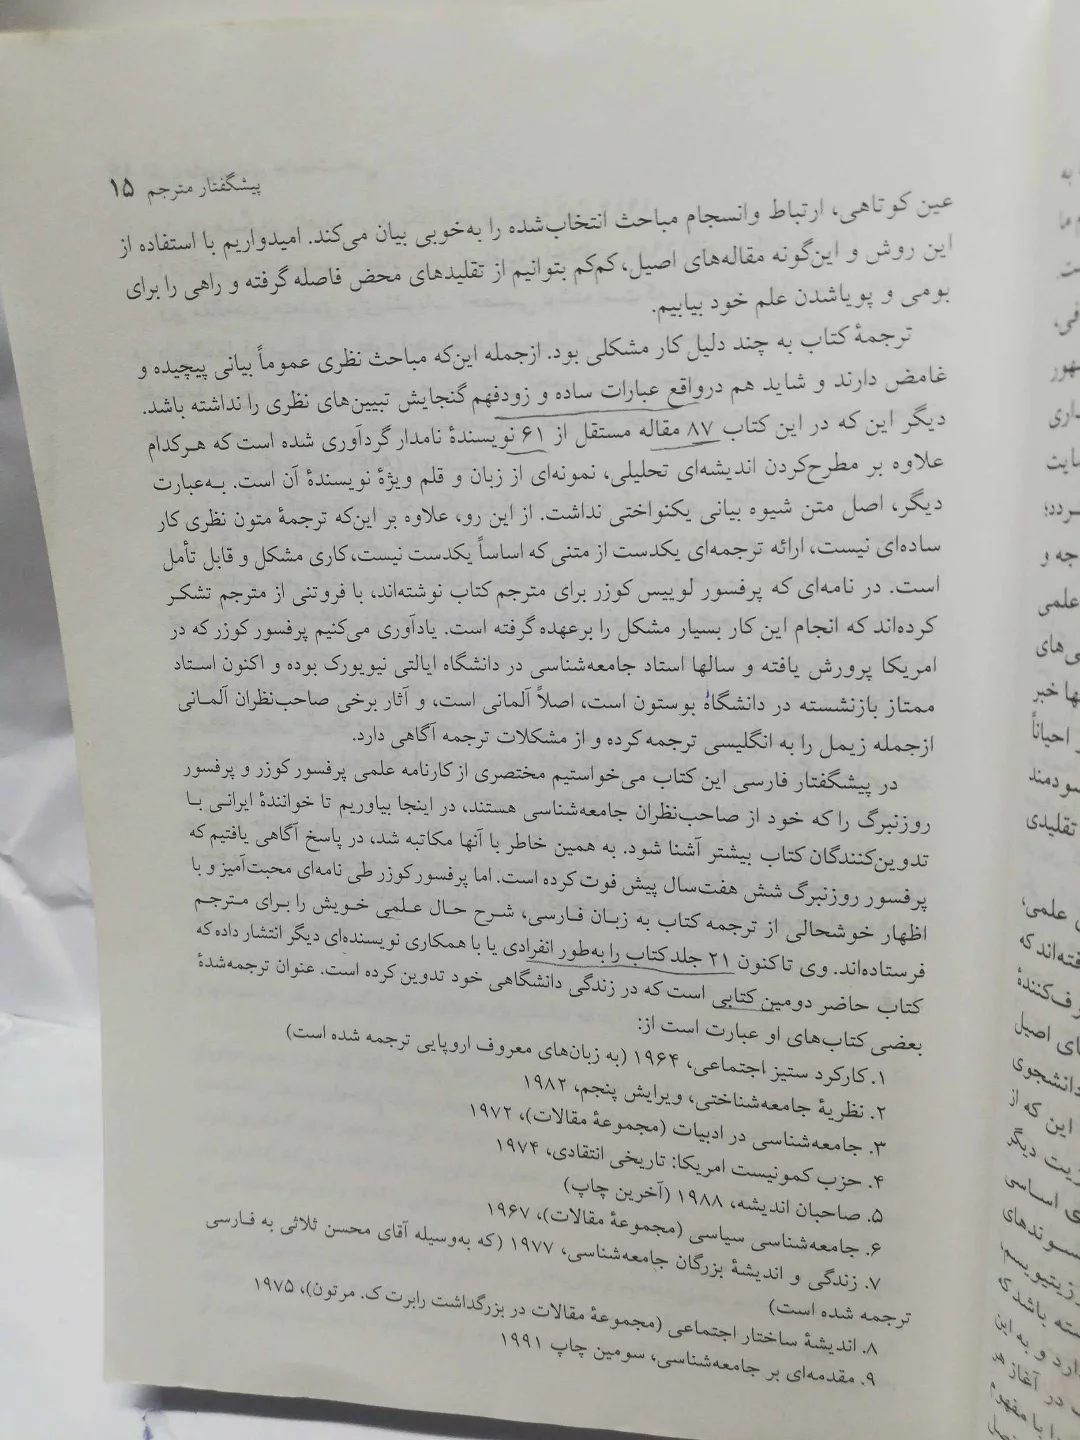 پیشگفتار مترجم ۱۵
عین کوتاهی، ارتباط وانسجام مباحث انتخاب‌شده را به‌خوبی بیان می‌کند. امیدواریم با استفاده از
این روش و این‌گونه مقاله‌های اصیل، کم‌کم بتوانیم از تقلیدهای محض فاصله گرفته و راهی را برای
بومی و پویاشدن علم خود بیابیم.
ترجمهٔ کتاب به چند دلیل کار مشکلی بود. ازجمله این‌که مباحث نظری عموماً بیانی پیچیده و
غامض دارند و شاید هم درواقع عبارات ساده و زودفهم گنجایش تبیین‌های نظری را نداشته باشد.
دیگر این که در این کتاب ۸۷ مقاله مستقل از ۶۱ نویسندهٔ نامدار گردآوری شده است که هرکدام
علاوه بر مطرح‌کردن اندیشه‌ای تحلیلی، نمونه‌ای از زبان و قلم ویژهٔ نویسندهٔ آن است. به‌عبارت
دیگر، اصل متن شیوه بیانی یکنواختی نداشت. از این رو، علاوه بر این‌که ترجمهٔ متون نظری کار
ساده‌ای نیست، ارائه ترجمه‌ای یکدست از متنی که اساساً یکدست نیست، کاری مشکل و قابل تأمل
است. در نامه‌ای که پرفسور لوییس کوزر برای مترجم کتاب نوشته‌اند، با فروتنی از مترجم تشکر
کرده‌اند که انجام این کار بسیار مشکل را برعهده گرفته است. یادآوری می‌کنیم پرفسور کوزر که در
امریکا پرورش یافته و سالها استاد جامعه‌شناسی در دانشگاه ایالتی نیویورک بوده و اکنون استاد
ممتاز بازنشسته در دانشگاه بوستون است، اصلاً آلمانی است، و آثار برخی صاحب‌نظران آلمانی
ازجمله زیمل را به انگلیسی ترجمه کرده و از مشکلات ترجمه آگاهی دارد.
در پیشگفتار فارسی این کتاب می‌خواستیم مختصری از کارنامه علمی پرفسور کوزر و پرفسور
روزنبرگ را که خود از صاحب‌نظران جامعه‌شناسی هستند، در اینجا بیاوریم تا خوانندهٔ ایرانی با
تدوین‌کنندگان کتاب بیشتر آشنا شود. به همین خاطر با آنها مکاتبه شد، در پاسخ آگاهی یافتیم که
پرفسور روزنبرگ شش هفت‌سال پیش فوت کرده است. اما پرفسور کوزر طی نامه‌ای محبت‌آمیز و با
اظهار خوشحالی از ترجمه کتاب به زبان فارسی، شرح حال علمی خویش را برای مترجم
فرستاده‌اند. وی تاکنون ۲۱ جلد کتاب را به‌طور انفرادی یا با همکاری نویسنده‌ای دیگر انتشار داده که
کتاب حاضر دومین کتابی است که در زندگی دانشگاهی خود تدوین کرده است. عنوان ترجمه‌شدهٔ
بعضی کتاب‌های او عبارت است از:
۱. کارکرد ستیز اجتماعی، ۱۹۶۴ (به زبان‌های معروف اروپایی ترجمه شده است)
۲. نظریهٔ جامعه‌شناختی، ویرایش پنجم، ۱۹۸۲
۳. جامعه‌شناسی در ادبیات (مجموعهٔ مقالات)، ۱۹۷۲
۴. حزب کمونیست امریکا: تاریخی انتقادی، ۱۹۷۴
۵. صاحبان اندیشه، ۱۹۸۸ (آخرین چاپ)
۶. جامعه‌شناسی سیاسی (مجموعهٔ مقالات)، ۱۹۶۷
۷. زندگی و اندیشهٔ بزرگان جامعه‌شناسی، ۱۹۷۷ (که به‌وسیله آقای محسن ثلاثی به فارسی
ترجمه شده است)
۸. اندیشهٔ ساختار اجتماعی (مجموعهٔ مقالات در بزرگداشت رابرت ک. مرتون)، ۱۹۷۵
۹. مقدمه‌ای بر جامعه‌شناسی، سومین چاپ ۱۹۹۱